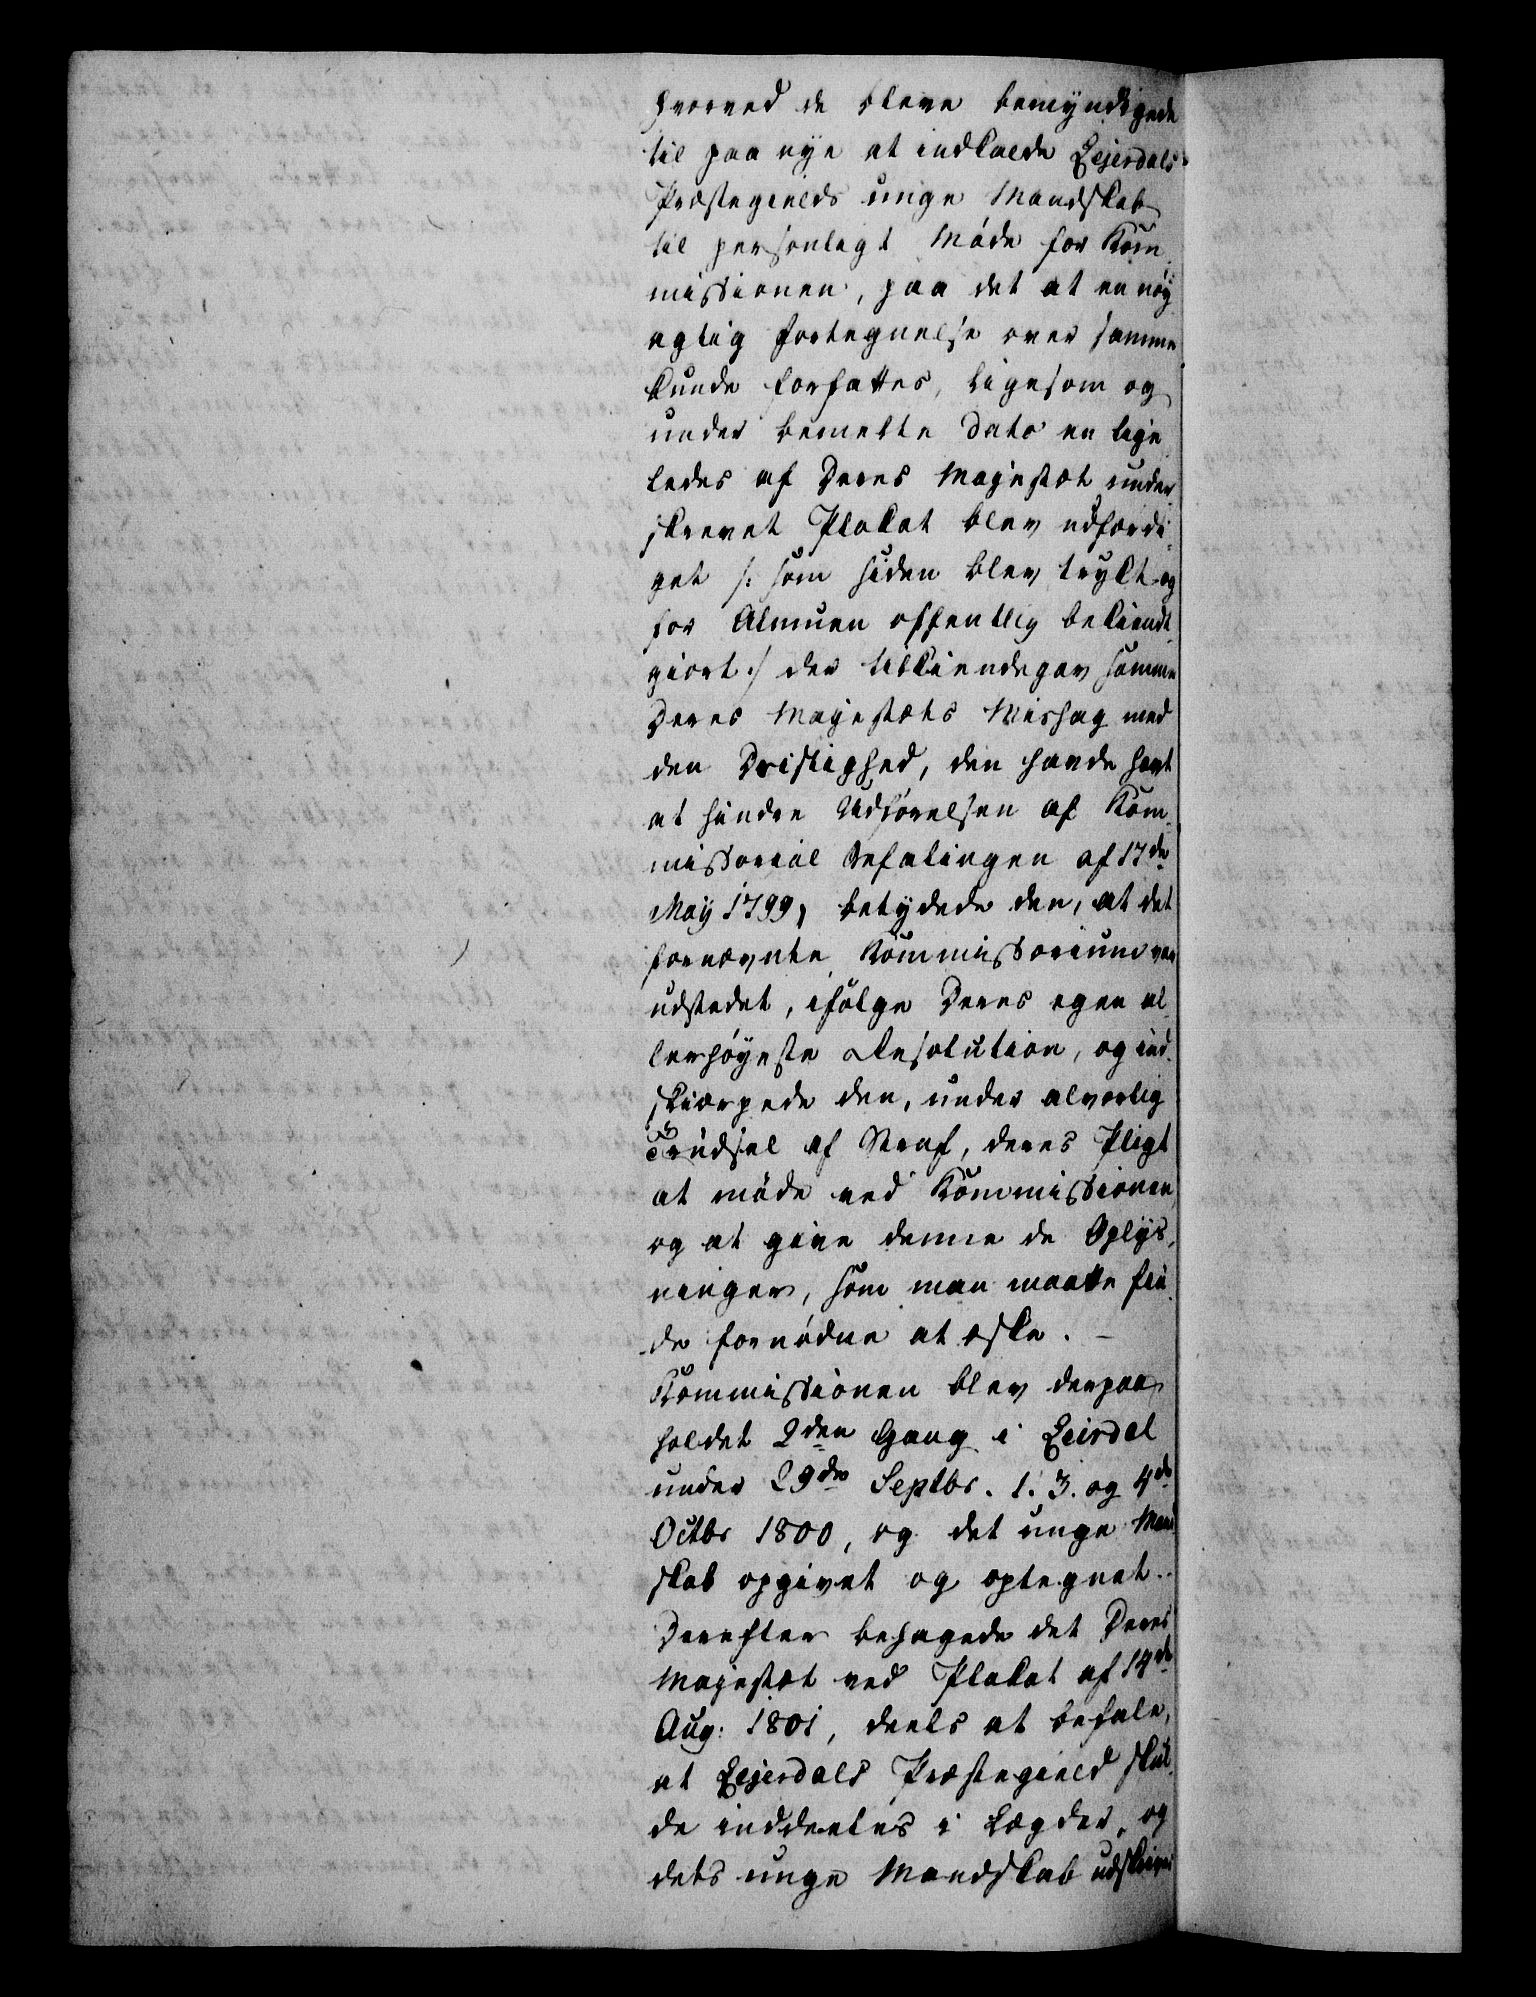 hvorved de bleve bemyndigede
til paa nye at indkalde Lejerdals
Præstegields unge Mandskab
til personligt Møde for Kom-
missionen, paa det at en nøy-
agtig Fortegnelse over samme
kunde forfattes, ligesom og
under bemelte Dato en lige-
ledes af Deres Majestæt under-
skrevet Plakat blev udfærdi-
get /: som siden blev trykt og
for Almuen offentlig bekiendt-
giort :/ der tilkiendegav samme
Deres Majestæts Mishag med
den Dristighed, den havde havt
at hindre Udførelsen af Kom-
missorial Befalingen af 17de
May 1799, betydede den, at det
fornævnte Kommissorium var
udstedet, ifølge Deres egen al-
lerhøyeste Resolution, og ind-
skiærpede den, under alvorlig
Trudsel af Straf, deres Pligt
at møde ved Kommissionen
og at give denne de Oplys-
ninger, som man maatte fin-
de fornødne at æske. –
Kommissionen blev derpaa
holdet 2den Gang i Leirdal
under 29de Septbr. 1. 3. og 4de
Octbr 1800, og det unge Mand
skab opgivet og optegnet.
Derefter behagede det Deres
Majestæt ved Plakat af 14de
Aug: 1801, deels at befale,
at Lejerdals Præstegield skul-
de inddeeles i Lægder, og
dets unge Mandskab udskrives